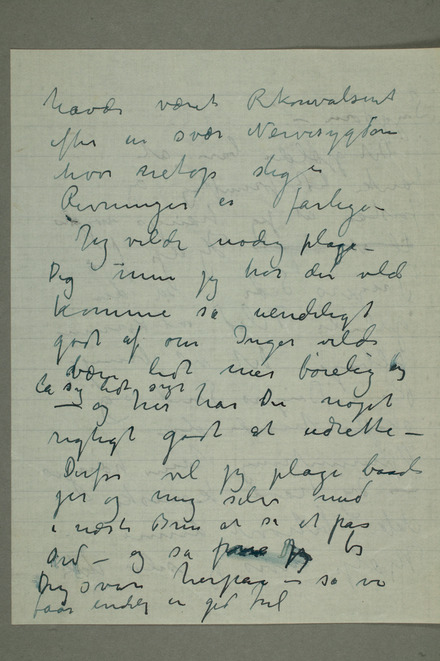 havde været Rkonvalsent
efter en svær Nervesygdom
hvor netop slige
Rivninger er farlige –
Jeg vilde nødig plage –
Dig men jeg tror det vilde
komme så uendeligt
godt af om Inger vilde
være lidt mer bøielig og
la sig lidt sige
– og her har Du noget
rigtigt godt at udrette –
Derfor vil jeg plage baade
jer og mig selv med
i næste Brev at se et pas
ord – og så be
Dig svare herpaa – så vi
faar endelig en god